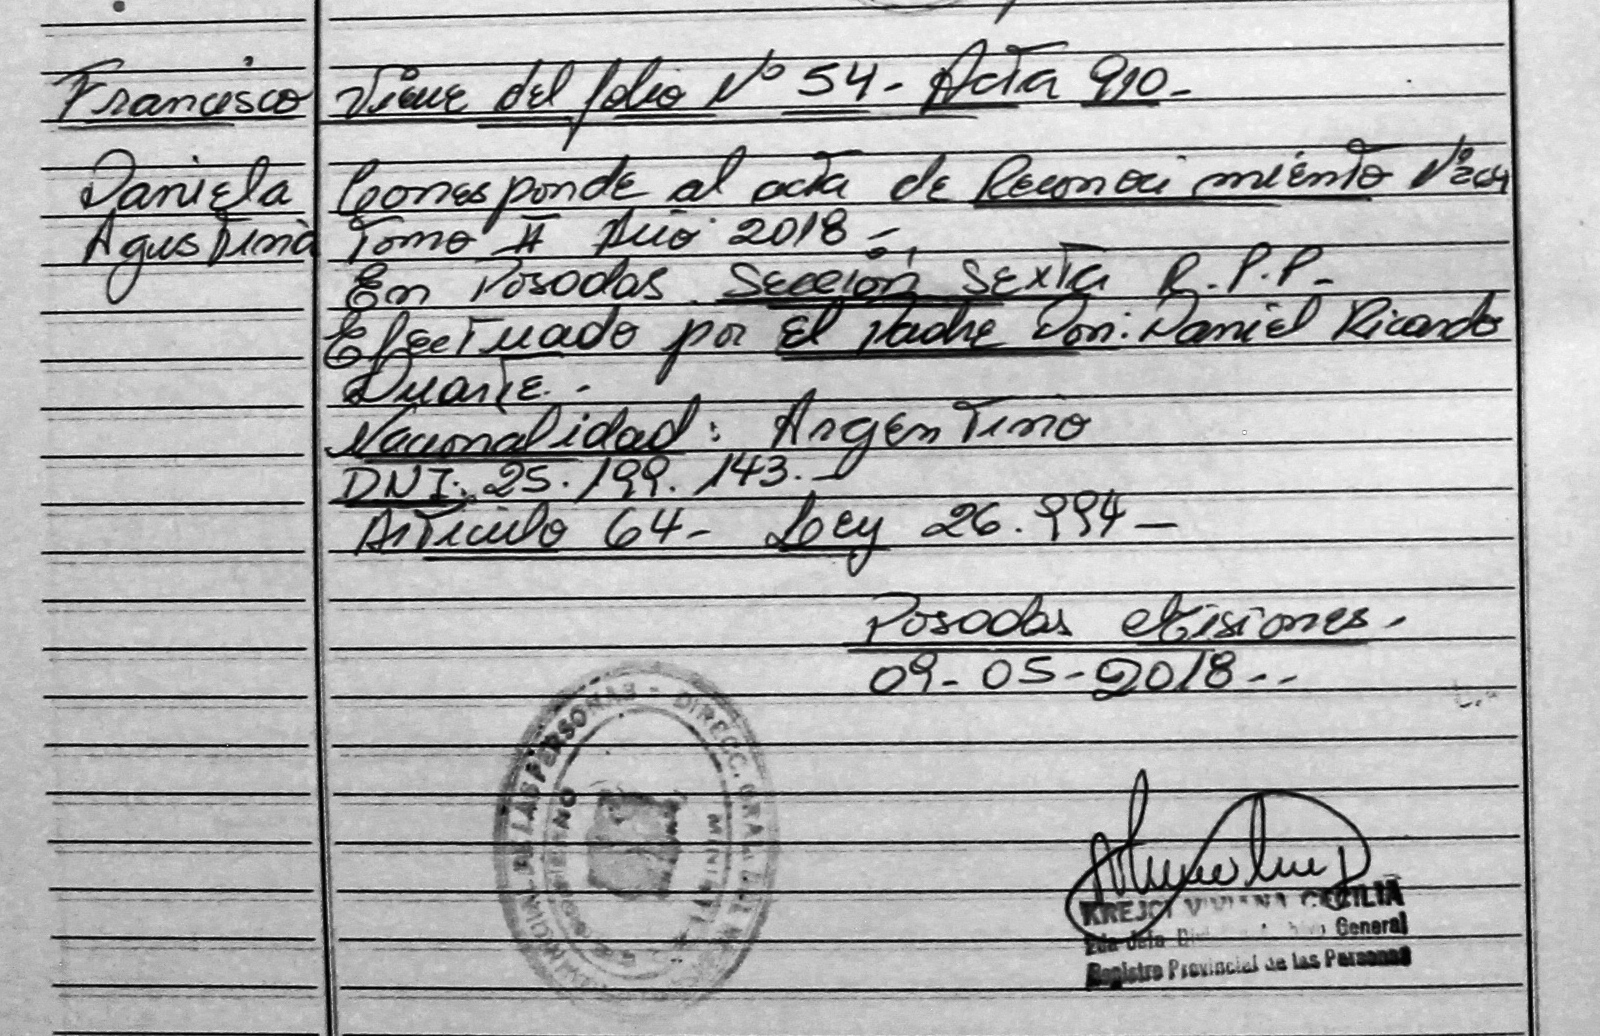 Francisco
Daniela
Agustina
Viene del folio Nº 54- Acta 910-
Corresponde al acta de Reconocimiento Nº 264
Tomo II Año 2018-
En Posadas. Sección Sexta R.P.P-
Efectuado por El Padre Don: Daniel Ricardo
Duarte.-
Nacionalidad: Argentino
DNI: 25.199.143.-
Artículo 64- Ley 26.994-
Posadas Misiones.-
09-05-2018--
DE LAS PERSONAS - DIRECC. GRAL. DEL
KREJCI VIVIANA CECILIA
2da Jefa General
Registro Provincial de las Personas